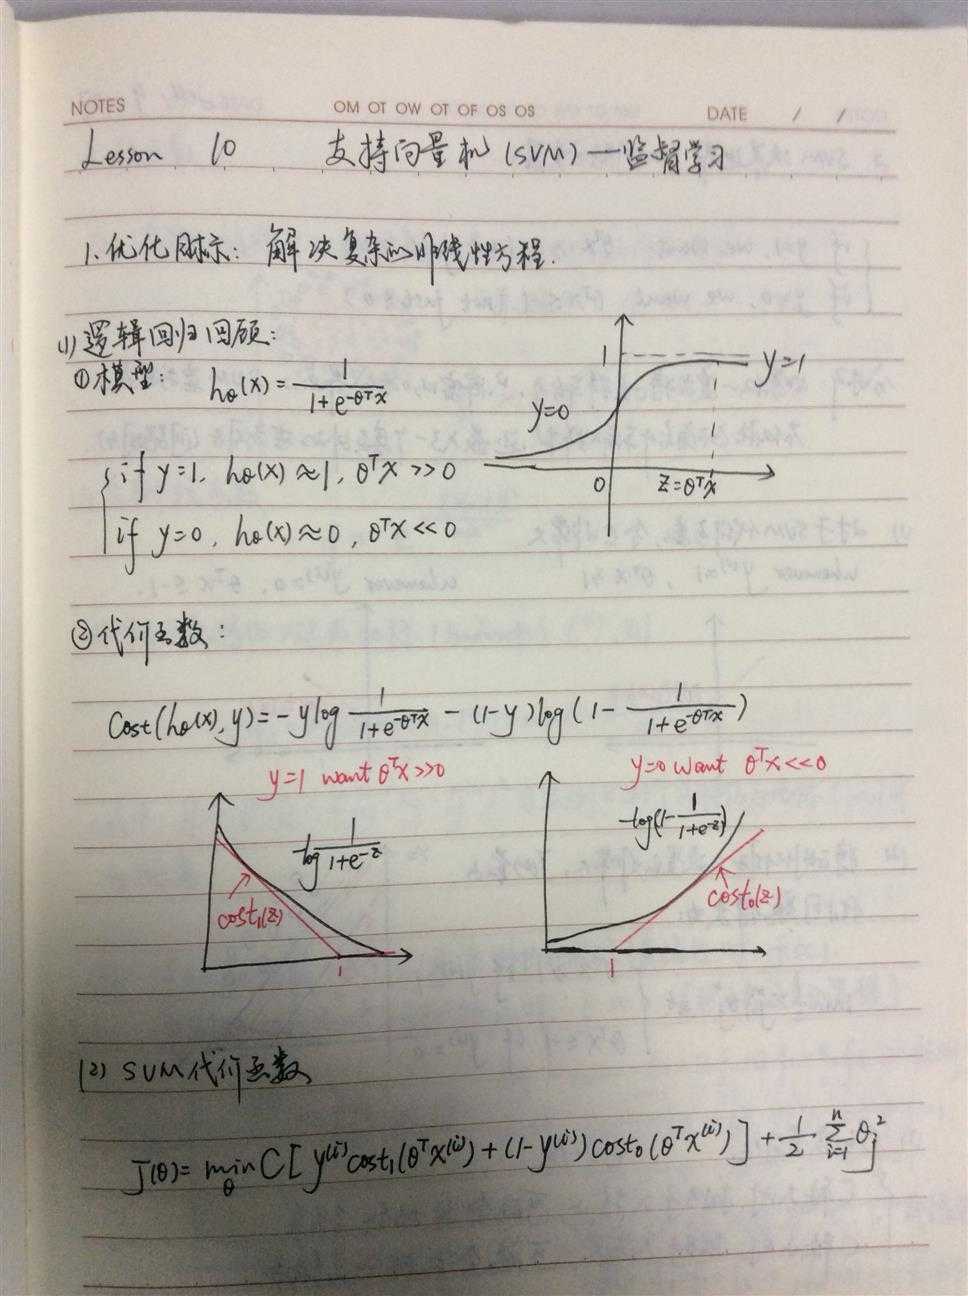 NOTES OM OT OW OT OF OS OS DATE / /
Lesson 10 支持向量机(SVM)—监督学习
1.优化目标: 解决复杂的非线性方程.
(1)逻辑回归回顾:
①模型: hθ(x)=1/(1+e^(-θᵀx))
1 y=1
y=0
0 z=θᵀx
if y=1, hθ(x)≈1, θᵀx>>0
if y=0, hθ(x)≈0, θᵀx<<0
②代价函数:
Cost(hθ(x),y)=-ylog 1/(1+e^(-θᵀx)) -(1-y)log(1- 1/(1+e^(-θᵀx)))
y=1 want θᵀx>>0
-log 1/(1+e^(-z))
cost₁(z)
1
y=0 want θᵀx<<0
-log(1- 1/(1+e^(-z)))
cost₀(z)
1
(2) SVM代价函数
J(θ)= min_θ C[y⁽ⁱ⁾cost₁(θᵀx⁽ⁱ⁾)+(1-y⁽ⁱ⁾)cost₀(θᵀx⁽ⁱ⁾)]+ 1/2 Σ_{i=1}^{n} θⱼ²